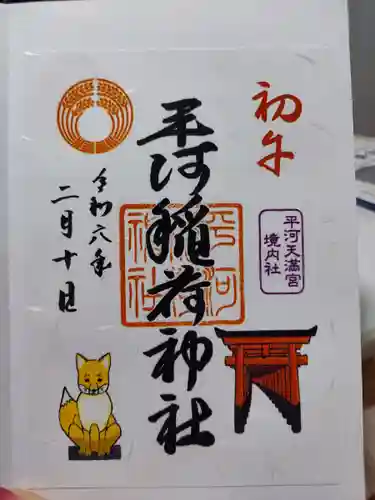 初午
平河天満宮
境内社
平河稲荷神社
平河
神社
令和六年
二月十日